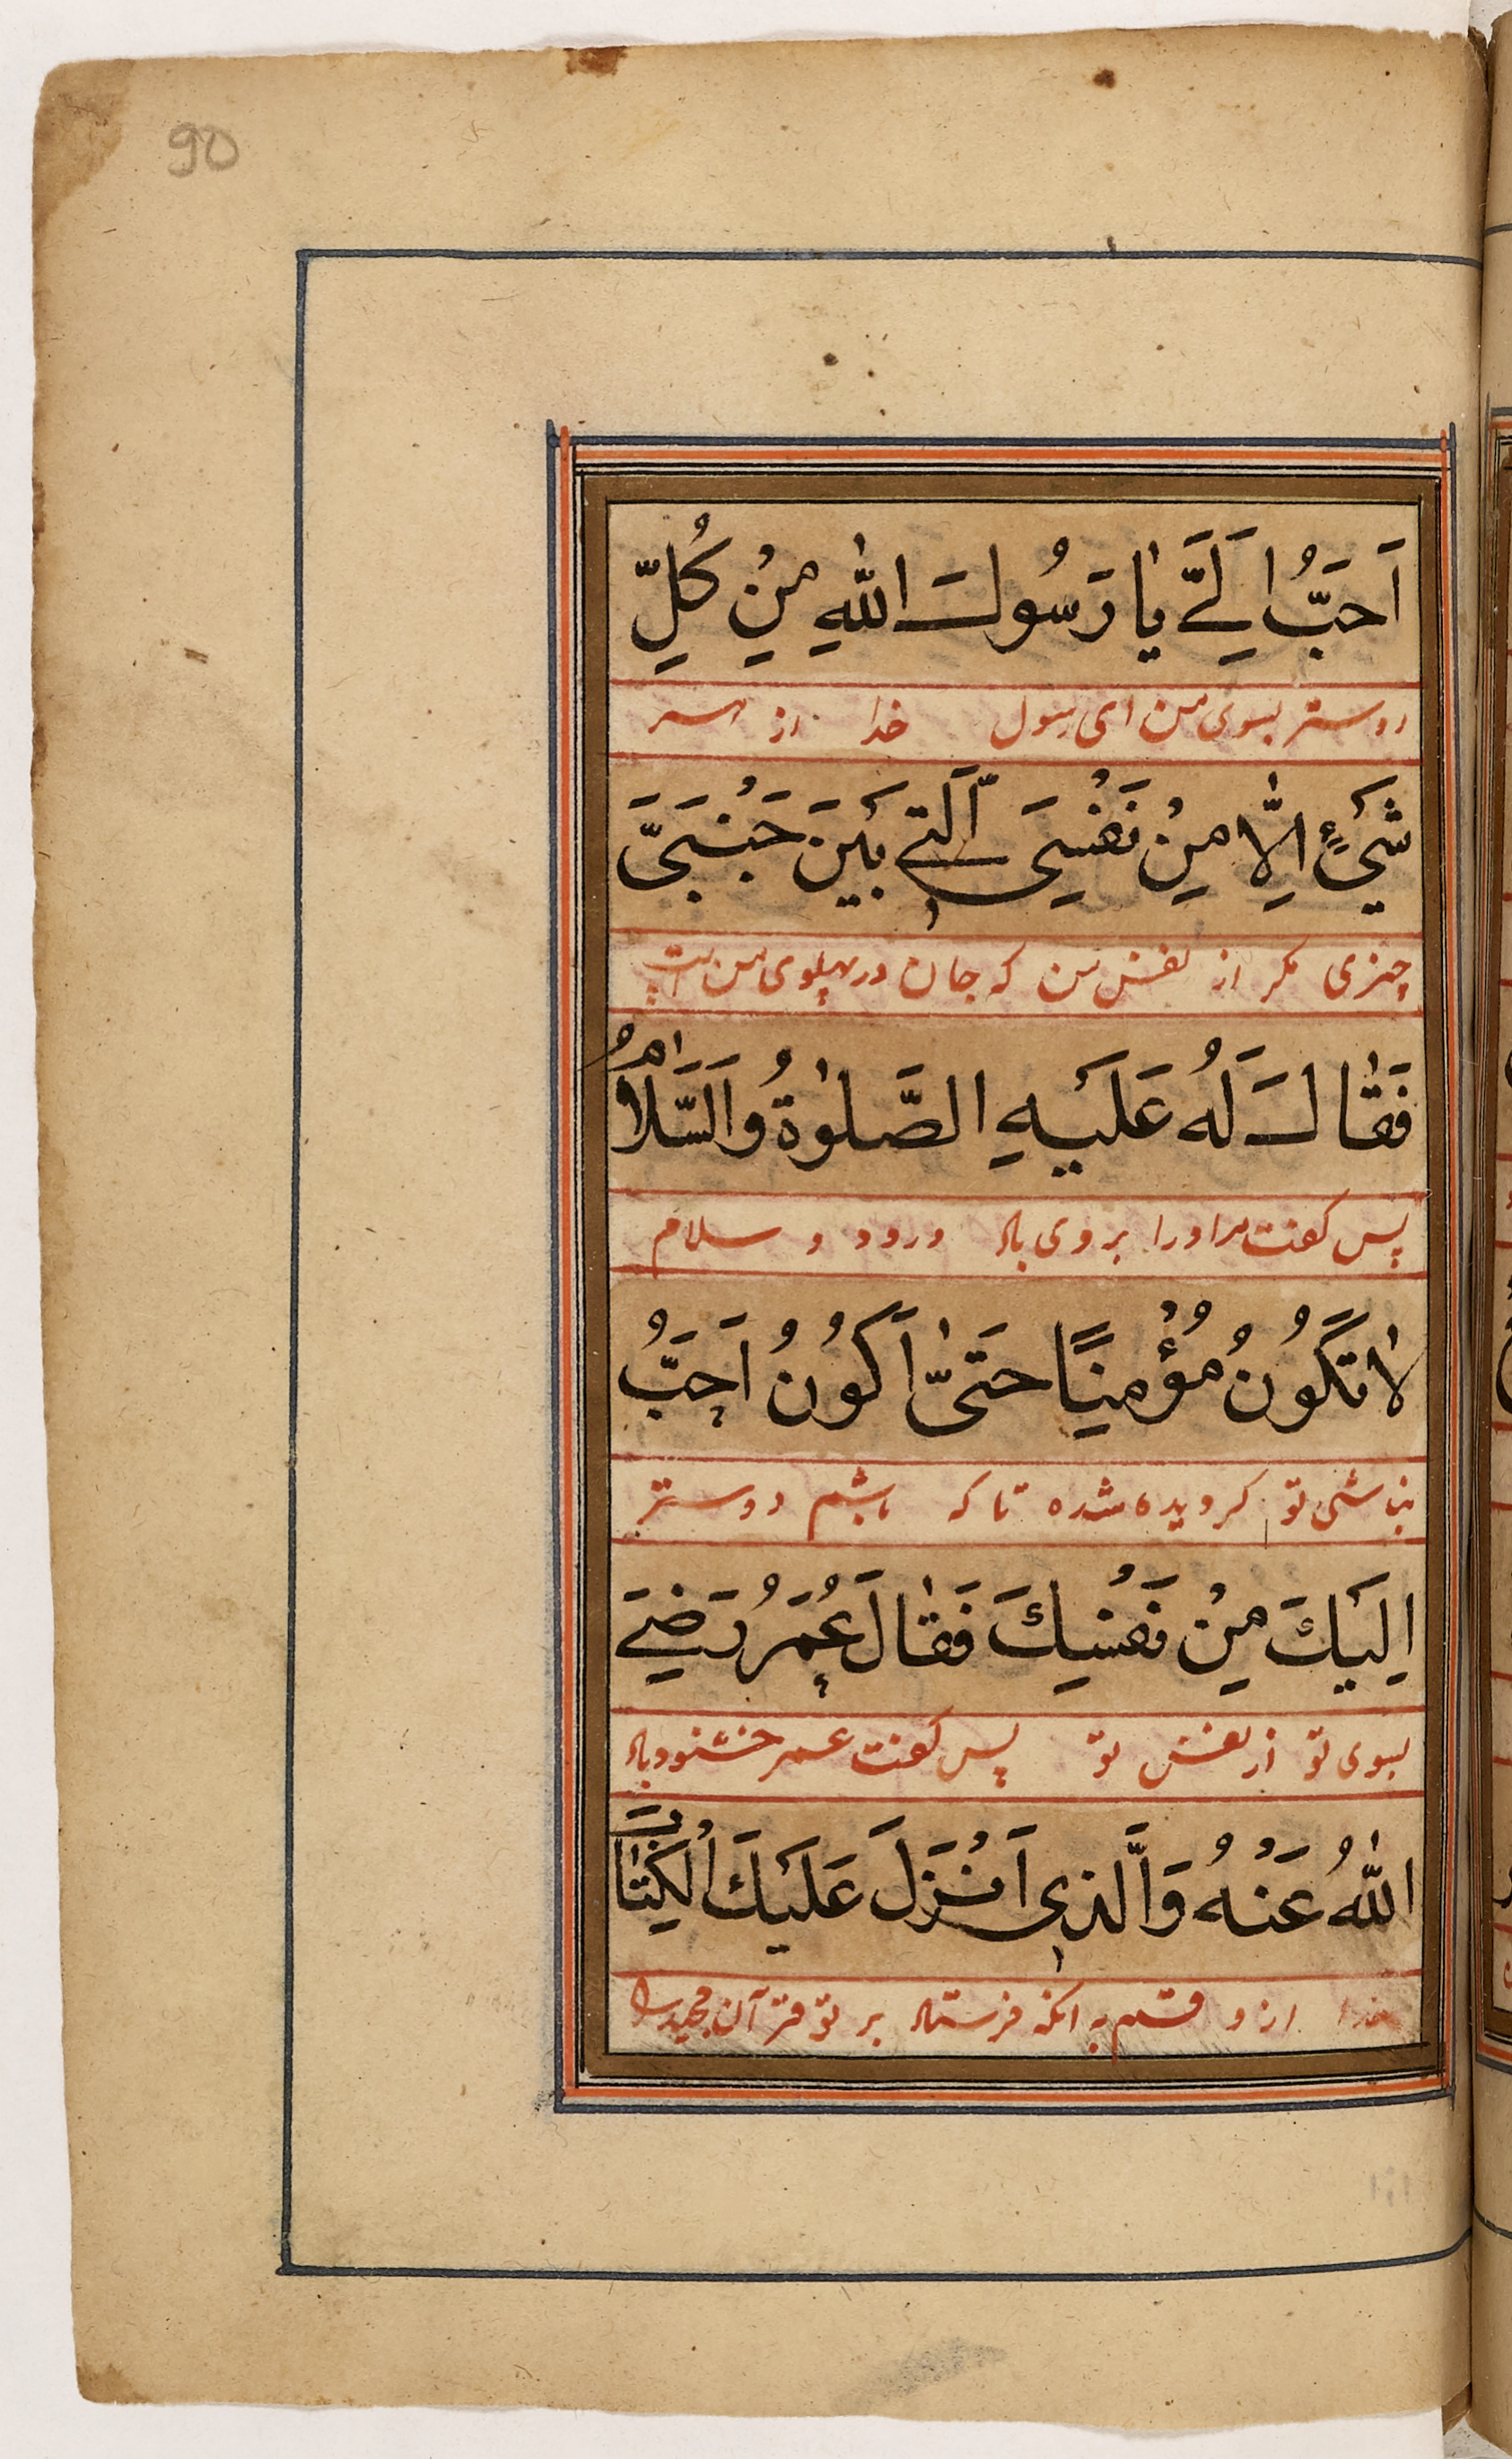 90
اَحَبُّ اِلَيَّ يٰا رَسُولَ اللهِ مِنْ كُلِّ
دوستر بسوی من ای رسول خدا از هر
شَيْءٍ اِلَّا مِنْ نَفْسِي اَلَّتِي بَيْنَ جَنْبَيَّ
چیزی مکر از نفس من که جان در پهلوی من است
فَقٰالَ لَهُ عَلَيْهِ الصَّلٰوةُ وَالسَّلَامُ
پس کفت مر اورا بروی باد درود و سلام
لٰا تَكُونُ مُؤْمِنًا حَتَّىٰ اَكُونُ اَحَبُّ
نباشی تو کرویده شده تا که باشم دوستر
اِلَيْكَ مِنْ نَفْسِكَ فَقٰالَ عُمَرُ رَضِيَ
بسوی تو از نفس تو پس کفت عمر خشنود باد
اللهُ عَنْهُ وَالَّذِي اَنْزَلَ عَلَيْكَ الْكِتٰابَ
خدا از و قسم به انکه فرستاد بر تو قرآن مجید را